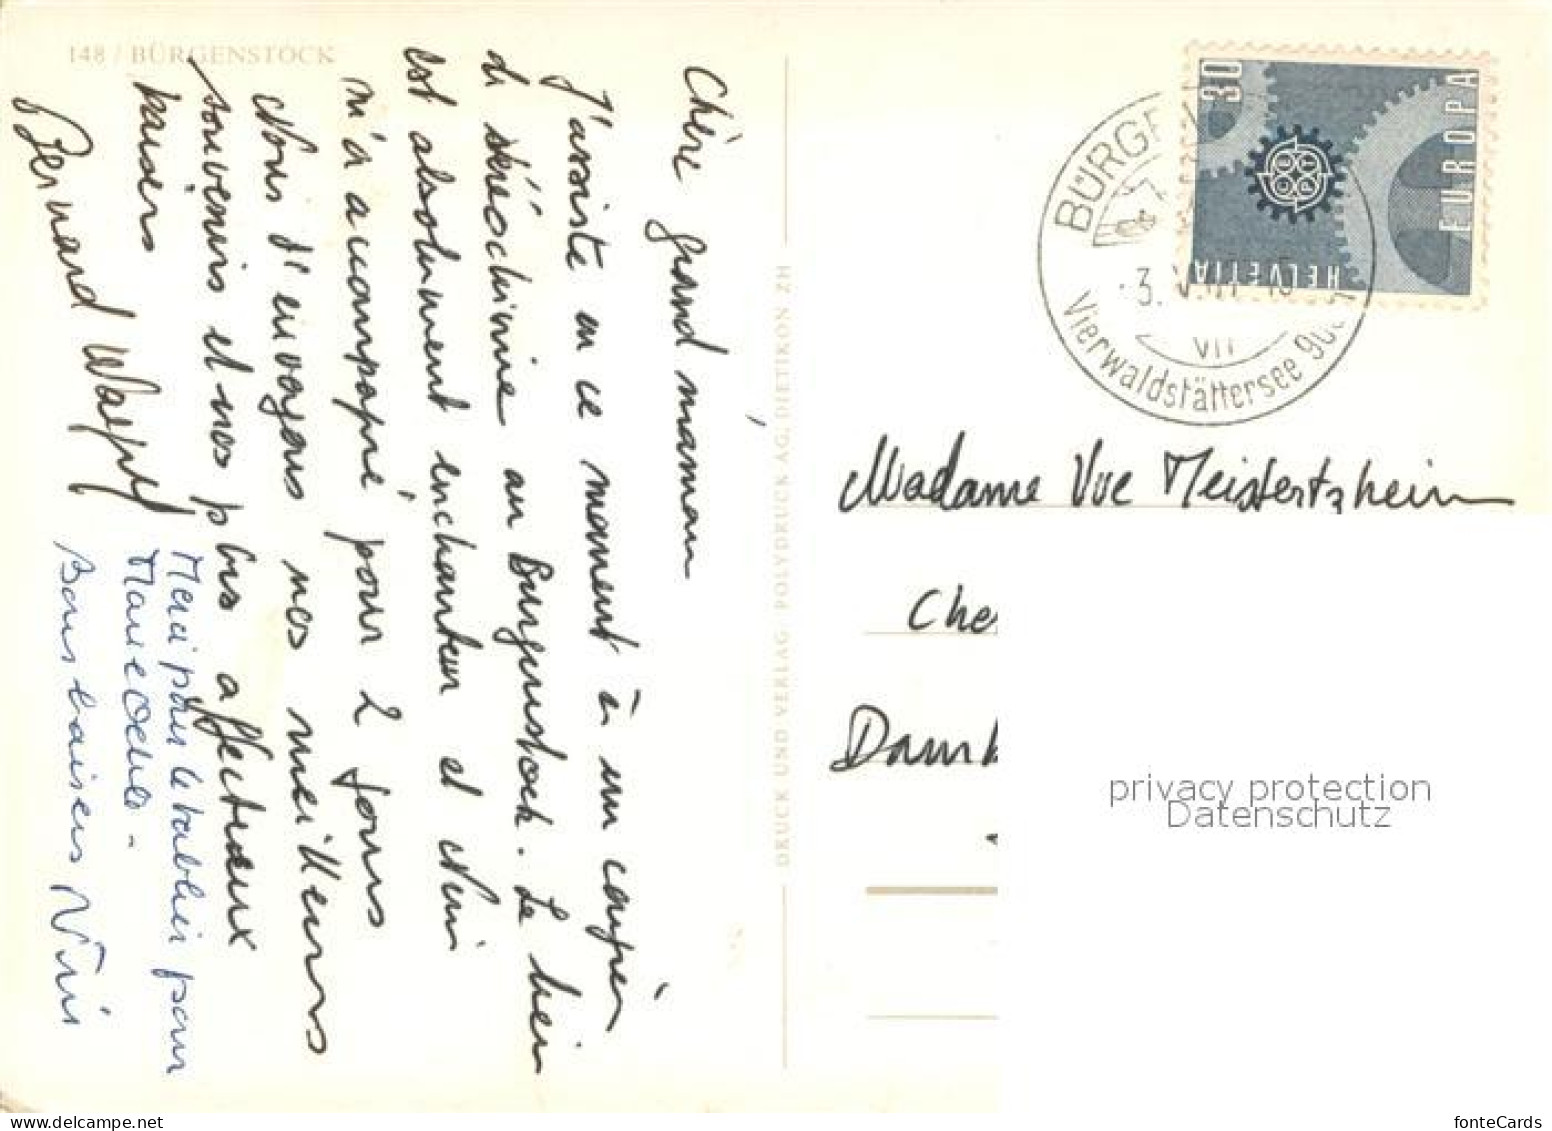 148 / BÜRGENSTOCK
Chère grand maman
J'assiste en ce moment à un congrès
di stéréochimie au Burgenstock. Le lieu
est absolument enchanteur et Nini
m'a accompagné pour 2 jours
Nous t'envoyons nos meilleurs
souvenirs et nos plus affectueux
baisers
Bernard
Merci pour le tablier pour
Marie Odile -
Bons baisers Nini
DRUCK UND VERLAG: POLYDRUCK AG, DIETIKON ZH
30
EUROPA
HELVETIA
BÜRGE
3.
VII
Vierwaldstättersee 900
Madame Vve Meistertzheim
Che
Dam
privacy protection
Datenschutz
fonteCards